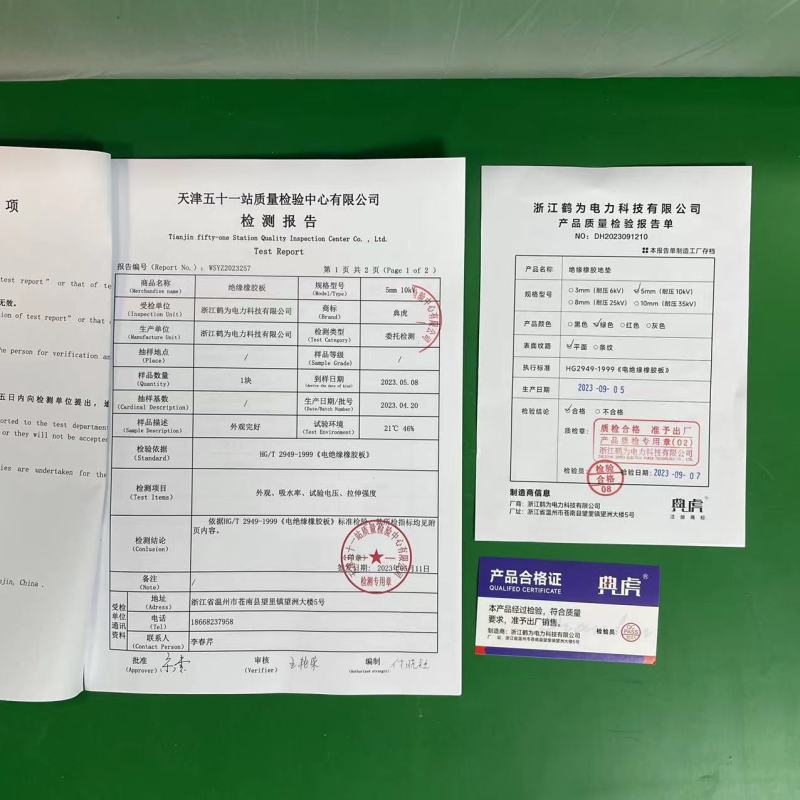 项
test report" or that of te
无效。
ion of test report" or that
he person for verification an
五日内向检测单位提出,逾
orted to the test departmen
or they will not be accepted
ies are undertaken for the
njin, China.
天津五十一站质量检验中心有限公司
检测报告
Tianjin fifty-one Station Quality Inspection Center Co., Ltd.
Test Report
报告编号(Report No.): WSYZ2023257 第 1 页 共 2 页(Page 1 of 2)
商品名称 (Merchandise name) 绝缘橡胶板 规格型号 (Model/Type) 5mm 10kV
受检单位 (Inspection Unit) 浙江鹤为电力科技有限公司 商标 (Brand) 典虎
生产单位 (Manufacture Unit) 浙江鹤为电力科技有限公司 检测类型 (Test Category) 委托检测
抽样地点 (Place) / 样品等级 (Sample Grade) /
样品数量 (Quantity) 1块 到样日期 2023.05.08
抽样基数 (Cardinal Description) / 生产日期/批号 (Date/Batch Number) 2023.04.20
样品描述 (Sample Description) 外观完好 试验环境 (Test Environment) 21℃ 46%
检验依据 (Standard) HG/T 2949-1999《电绝缘橡胶板》
检测项目 (Test Items) 外观、吸水率、试验电压、拉伸强度
检测结论 (Conlusion) 依据HG/T 2949-1999《电绝缘橡胶板》标准检验,所检指标均见附
页内容。
(印章)
签发日期: 2023年05月11日
检测专用章
备注 (Note) /
受检单位通讯资料
地址 (Adress) 浙江省温州市苍南县望里镇望洲大楼5号
电话 (Tel) 18668237958
联系人 (Contact Person) 李春芹
批准 (Approver) 审核 (Verifier) 编制
浙江鹤为电力科技有限公司
产品质量检验报告单
NO: DH2023091210
本报告单制造工厂存档
产品名称 绝缘橡胶地垫
规格型号 ○3mm(耐压 6kV) ✓5mm(耐压 10kV)
○8mm(耐压 25kV) ○10mm(耐压 35kV)
产品颜色 ○黑色 ✓绿色 ○红色 ○灰色
表面纹路 ✓平面 ○条纹
执行标准 HG2949-1999《电绝缘橡胶板》
生产日期 2023-09-05
检验结论 ✓合格 ○不合格
质检章: 质检合格 准予出厂
产品质检专用章(02)
浙江鹤为电力科技有限公司
检验员: 检验合格 08 检验日期: 2023-09-07
制造商信息
厂商: 浙江鹤为电力科技有限公司
厂址: 浙江省温州市苍南县望里镇望洲大楼5号
典虎®
注册商标
产品合格证
QUALIFED CERTIFICATE
典虎®
本产品经过检验,符合质量
要求,准予出厂销售。
制造商: 浙江鹤为电力科技有限公司
厂 址: 浙江省温州市苍南县望里镇望洲大楼5号
检验员: QC PASS